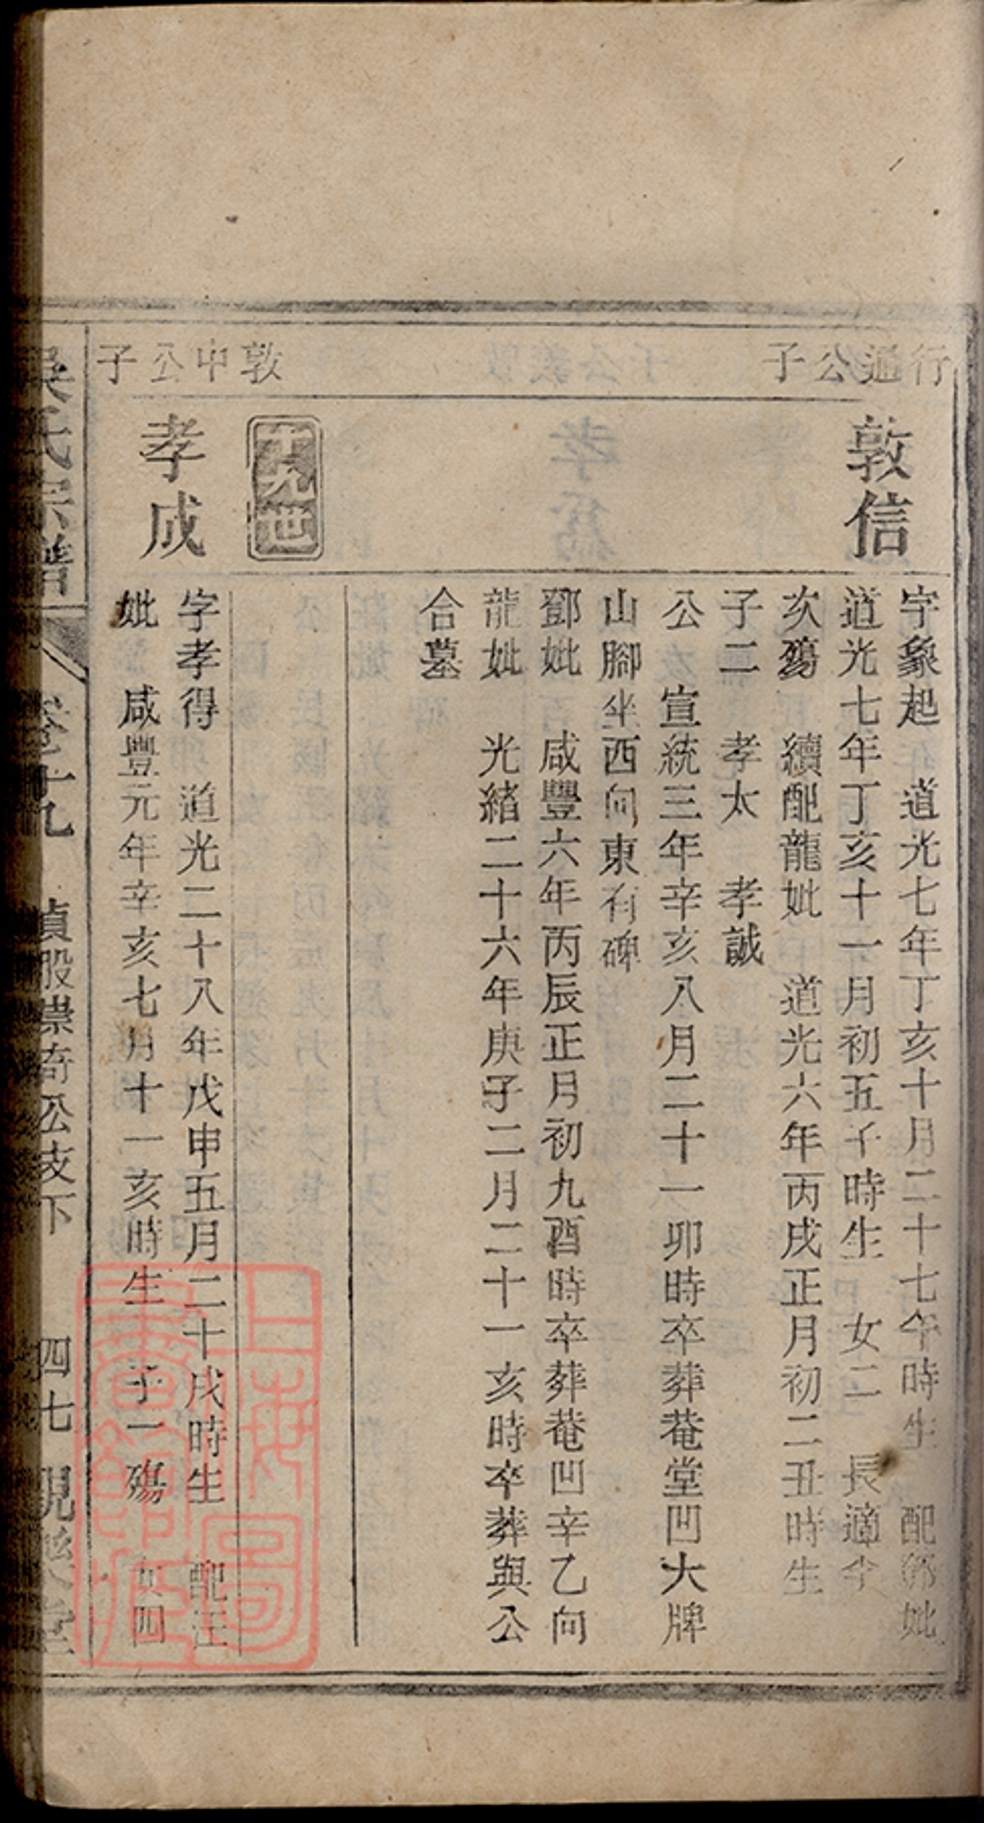 行通公子
敦信
字象起　道光七年丁亥十月二十七午時生　配鄧妣
道光七年丁亥十一月初五子時生　女二　長適李
次殤　續配龍妣　道光六年丙戌正月初二丑時生
子二　孝太　孝誠
公　宣統三年辛亥八月二十一卯時卒葬菴堂凹大牌
山腳坐西向東有碑
鄧妣　咸豐六年丙辰正月初九酉時卒葬菴凹辛乙向
龍妣　光緒二十六年庚子二月二十一亥時卒葬與公
合墓
十九世
敦中公子
孝成
字孝得　道光二十八年戊申五月二十戌時生　配汪
妣　咸豐元年辛亥七月十一亥時生　子一殤　女四
吳氏宗譜
卷十九　貞股崇奇公支下　四七　堂
上海圖書館藏